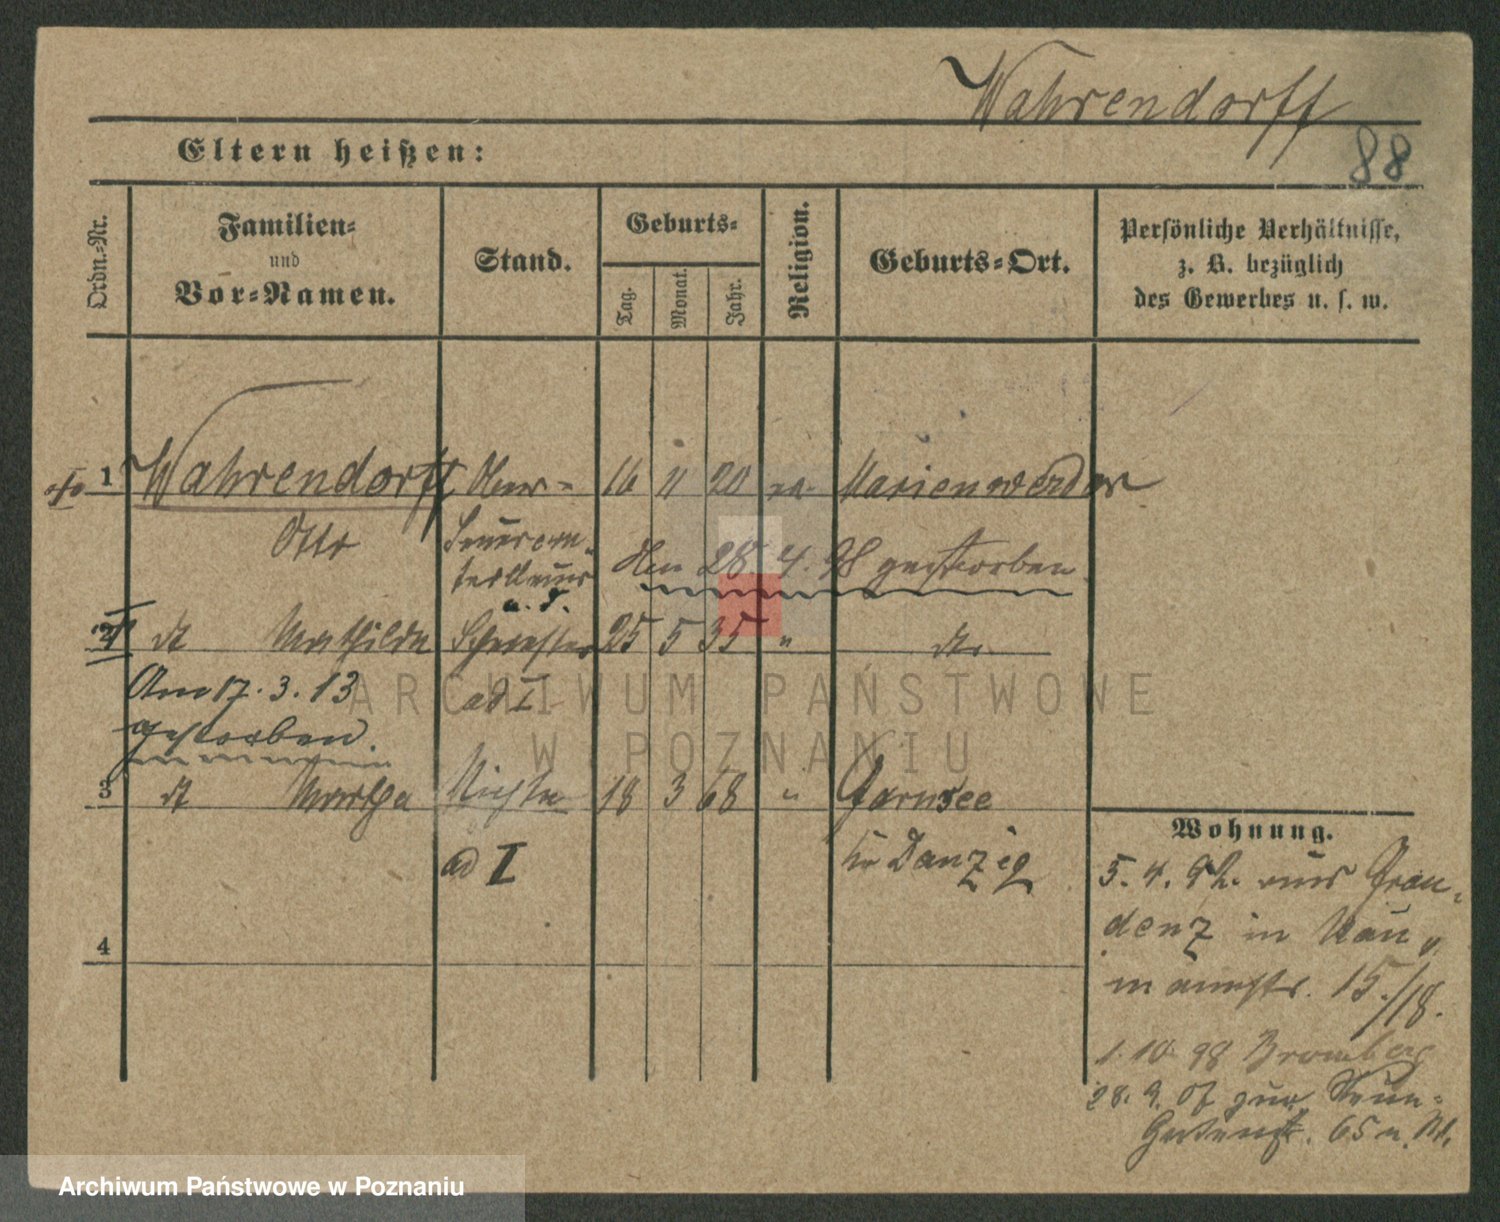 Wahrendorff
88
Eltern heißen:
Ordn.-Nr.
Familien-
und
Vor-Namen.
Stand.
Geburts-
Tag.
Monat.
Jahr.
Religion.
Geburts-Ort.
Persönliche Verhältnisse,
z. B. bezüglich
des Gewerbes u. s. w.
1 Wahrendorff Ober- 16 11 20 Marienwerder
Otto
den 28. 4. 98 gestorben
a. D.
2 dt Mathilde Schwester 25 5 35 " dto.
Am 17. 3. 13 ad I
gestorben.
3 dt Martha Nichte 18 3 68 " Garnsee
ad I Kr Danzig
4
Wohnung.
5. 4. 92. aus Grau-
denz in Nau
mannstr. 15./18.
1. 10. 98 Bromberg
28. 9. 07 zur.
65 n. Nl.
ARCHIWUM PAŃSTWOWE
W POZNANIU
Archiwum Państwowe w Poznaniu